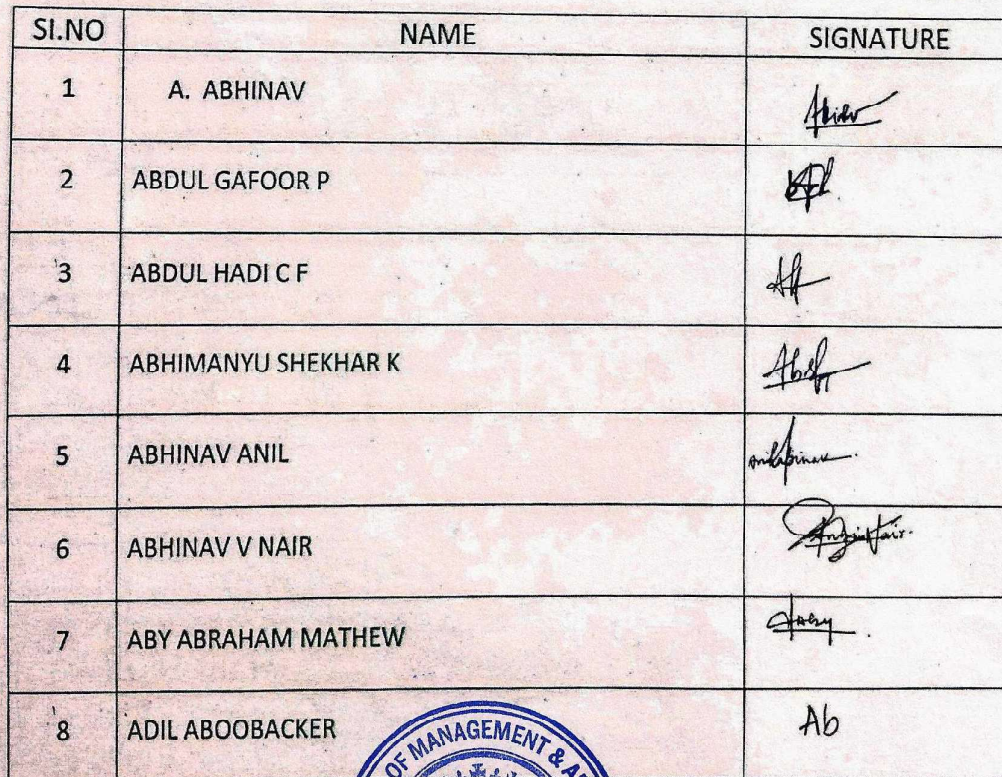 SI.NO NAME SIGNATURE
1 A. ABHINAV
2 ABDUL GAFOOR P
3 ABDUL HADI C F
4 ABHIMANYU SHEKHAR K
5 ABHINAV ANIL
6 ABHINAV V NAIR
7 ABY ABRAHAM MATHEW
8 ADIL ABOOBACKER Ab
OF MANAGEMENT &